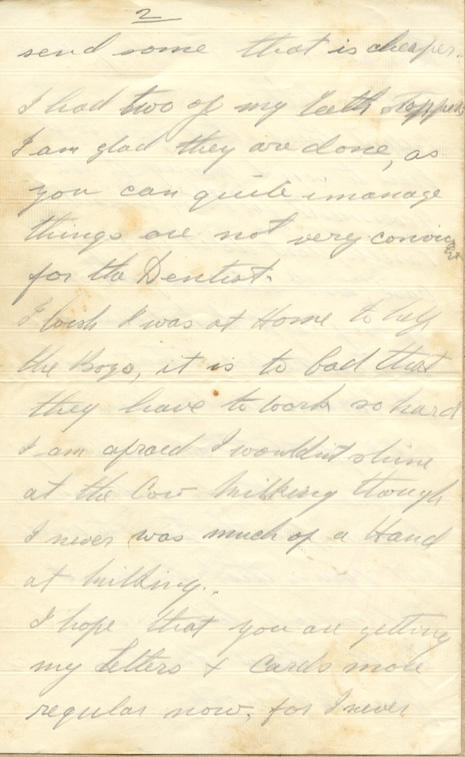 2
send some that is cheaper.
I had two of my teeth stopped
I am glad they are done, as
you can quite imanage
things are not very
for the Dentist.
I wish I was at Home to help
the Boys, it is to bad that
they have to work so hard
I am afraid I wouldn't shine
at the Cow Milking though
I never was much of a Hand
at Milking.
I hope that you are getting
my letters & Cards more
regular now, for I never